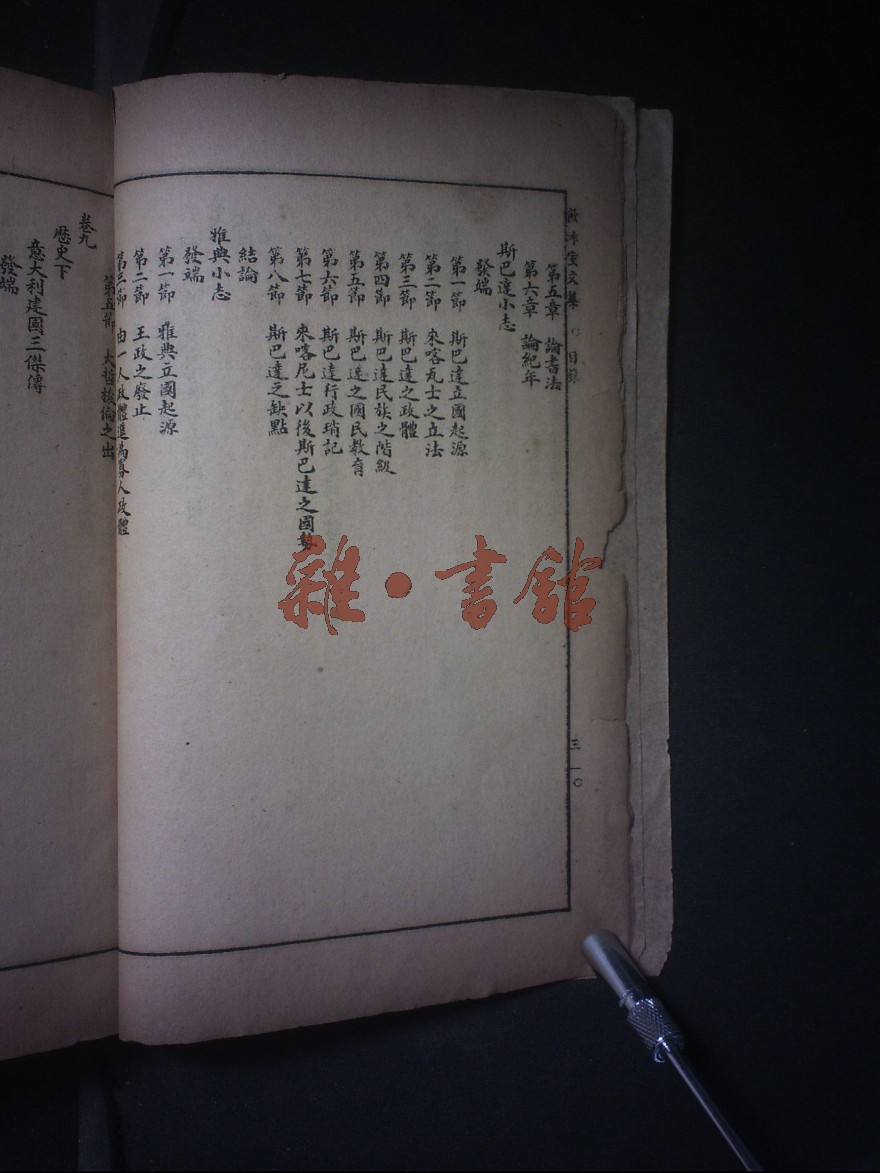 飲冰室文集 ○ 目錄
三 一○
第五章 論書法
第六章 論紀年
斯巴達小志
發端
第一節 斯巴達立國起源
第二節 來喀瓦士之立法
第三節 斯巴達之政體
第四節 斯巴達民族之階級
第五節 斯巴達之國民教育
第六節 斯巴達行政瑣記
第七節 來喀瓦士以後斯巴達之國勢
第八節 斯巴達之缺點
結論
雅典小志
發端
第一節 雅典立國起源
第二節 王政之廢止
第三節 由一人政體進為寡人政體
第五節 大哲梭倫之出
卷九
歷史下
意大利建國三傑傳
發端
雜·書館